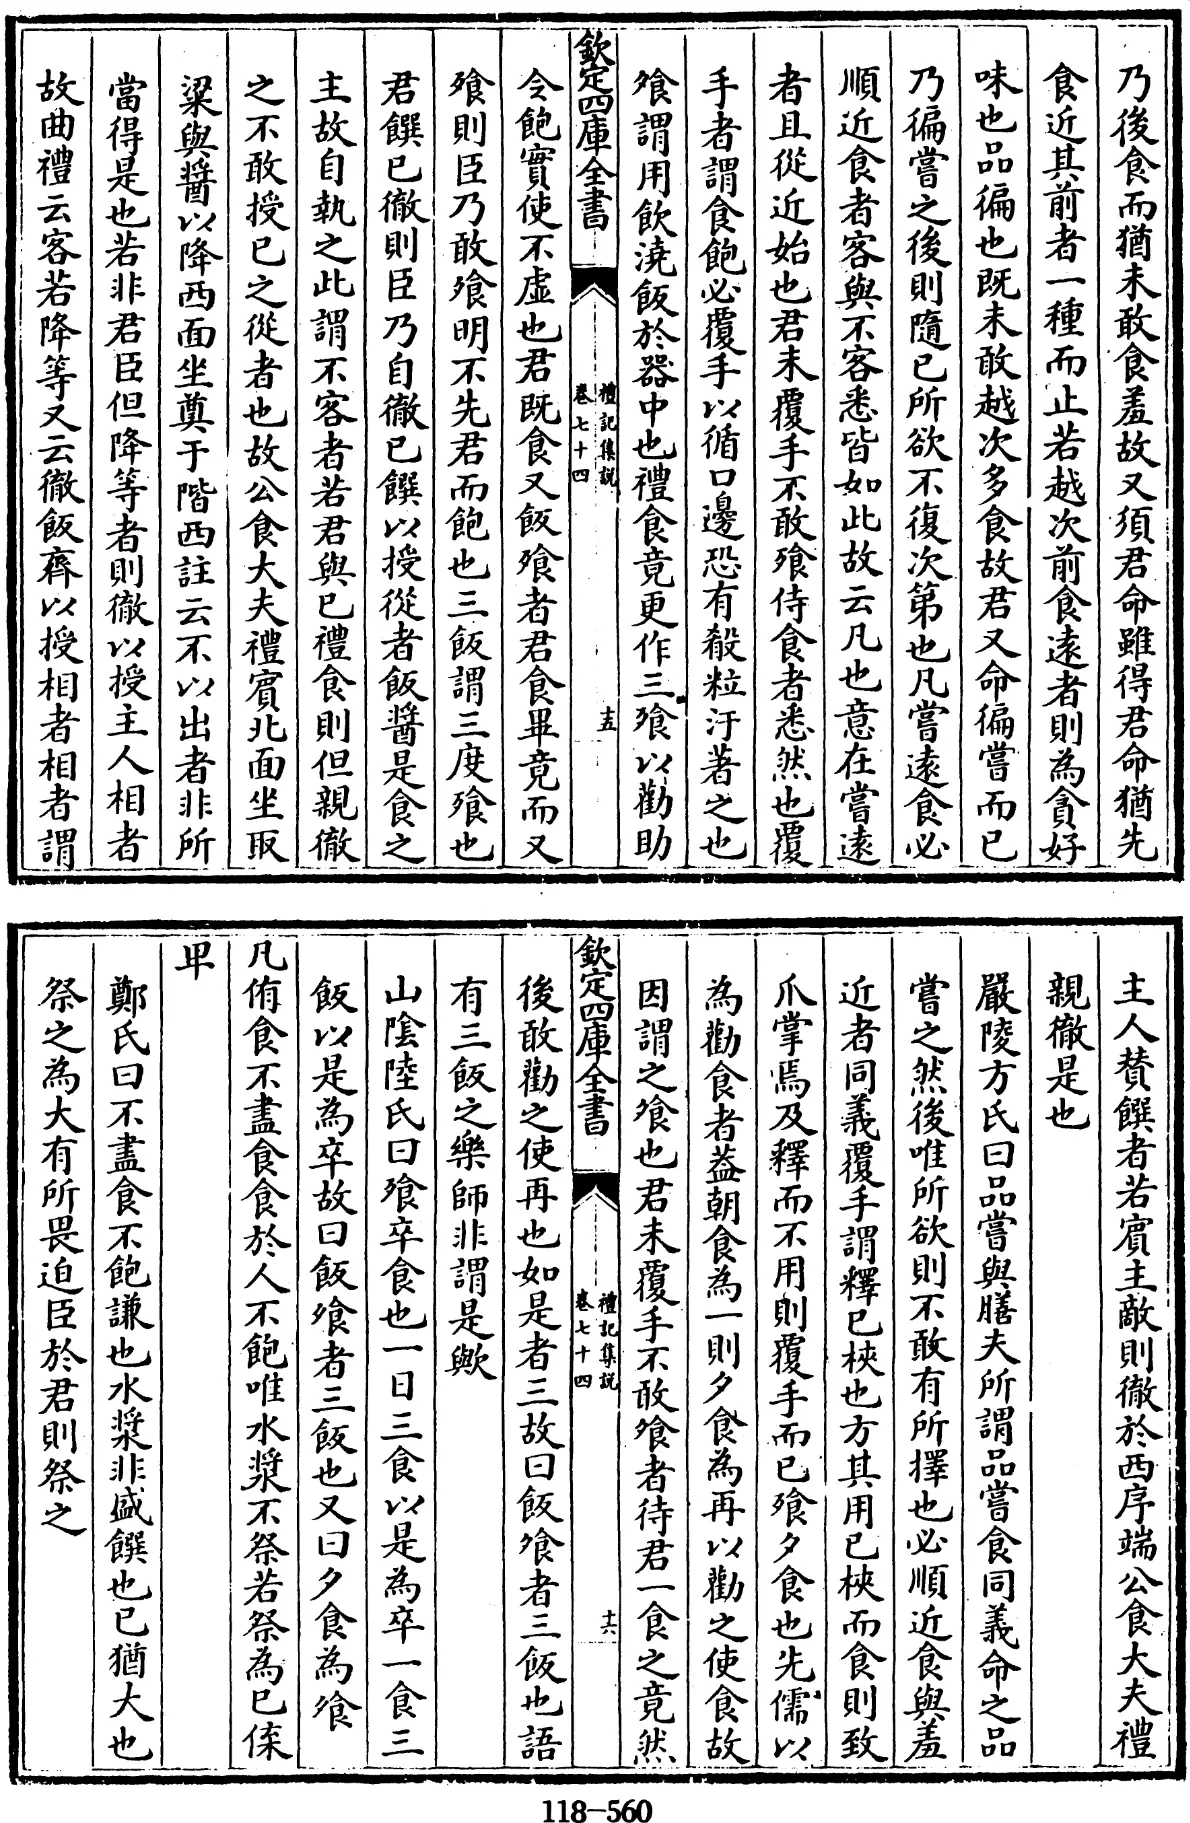 乃後食而猶未敢食羞故又須君命雖得君命猶先
食近其前者一種而止若越次前食逺者則為貪好
味也品徧也既未敢越次多食故君又命徧嘗而已
乃徧嘗之後則隨已所欲不復次第也凡嘗逺食必
順近食者客與不客悉皆如此故云凡也意在嘗逺
者且從近始也君未覆手不敢飱侍食者悉然也覆
手者謂食飽必覆手以循口邊恐有殽粒汙著之也
飱謂用飲澆飯於器中也禮食竟更作三飱以勸助
欽定四庫全書
禮記集説
卷七十四
十五
令飽實使不虚也君既食又飯飱者君食畢竟而又
飱則臣乃敢飱明不先君而飽也三飯謂三度飱也
君饌已徹則臣乃自徹已饌以授從者飯醬是食之
主故自執之此謂不客者若君與已禮食則但親徹
之不敢授已之從者也故公食大夫禮賓北面坐取
粱與醬以降西面坐奠于階西註云不以出者非所
當得是也若非君臣但降等者則徹以授主人相者
故曲禮云客若降等又云徹飯齊以授相者相者謂
主人賛饌者若賓主敵則徹於西序端公食大夫禮
親徹是也
嚴陵方氏曰品嘗與膳夫所謂品嘗食同義命之品
嘗之然後唯所欲則不敢有所擇也必順近食與羞
近者同義覆手謂釋已梜也方其用已梜而食則致
爪掌焉及釋而不用則覆手而已飱夕食也先儒以
為勸食者葢朝食為一則夕食為再以勸之使食故
因謂之飱也君未覆手不敢飱者待君一食之竟然
欽定四庫全書
禮記集説
卷七十四
十六
後敢勸之使再也如是者三故曰飯飱者三飯也語
有三飯之樂師非謂是歟
山隂陸氏曰飱卒食也一日三食以是為卒一食三
飯以是為卒故曰飯飱者三飯也又曰夕食為飱
凡侑食不盡食食於人不飽唯水漿不祭若祭為已傃
卑
鄭氏曰不盡食不飽謙也水漿非盛饌也已猶大也
祭之為大有所畏迫臣於君則祭之
118-560